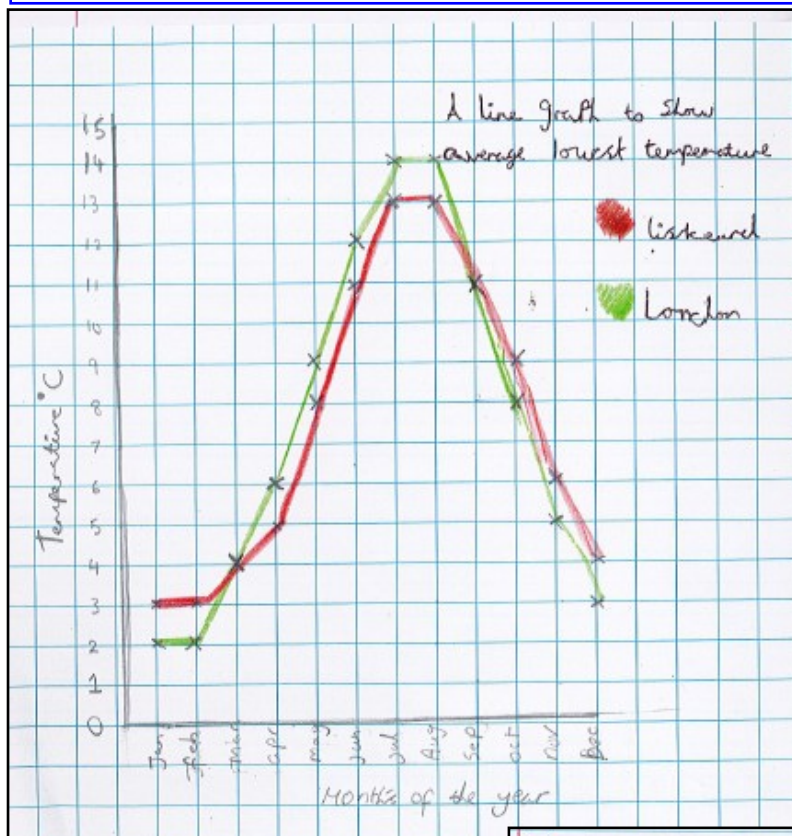 A line graph to show
average lowest temperature
liskeard
London
Temperature °C
15
14
13
12
11
10
9
8
7
6
5
4
3
2
1
0
Jan Feb Mar Apr May Jun Jul Aug Sep Oct Nov Dec
Months of the year